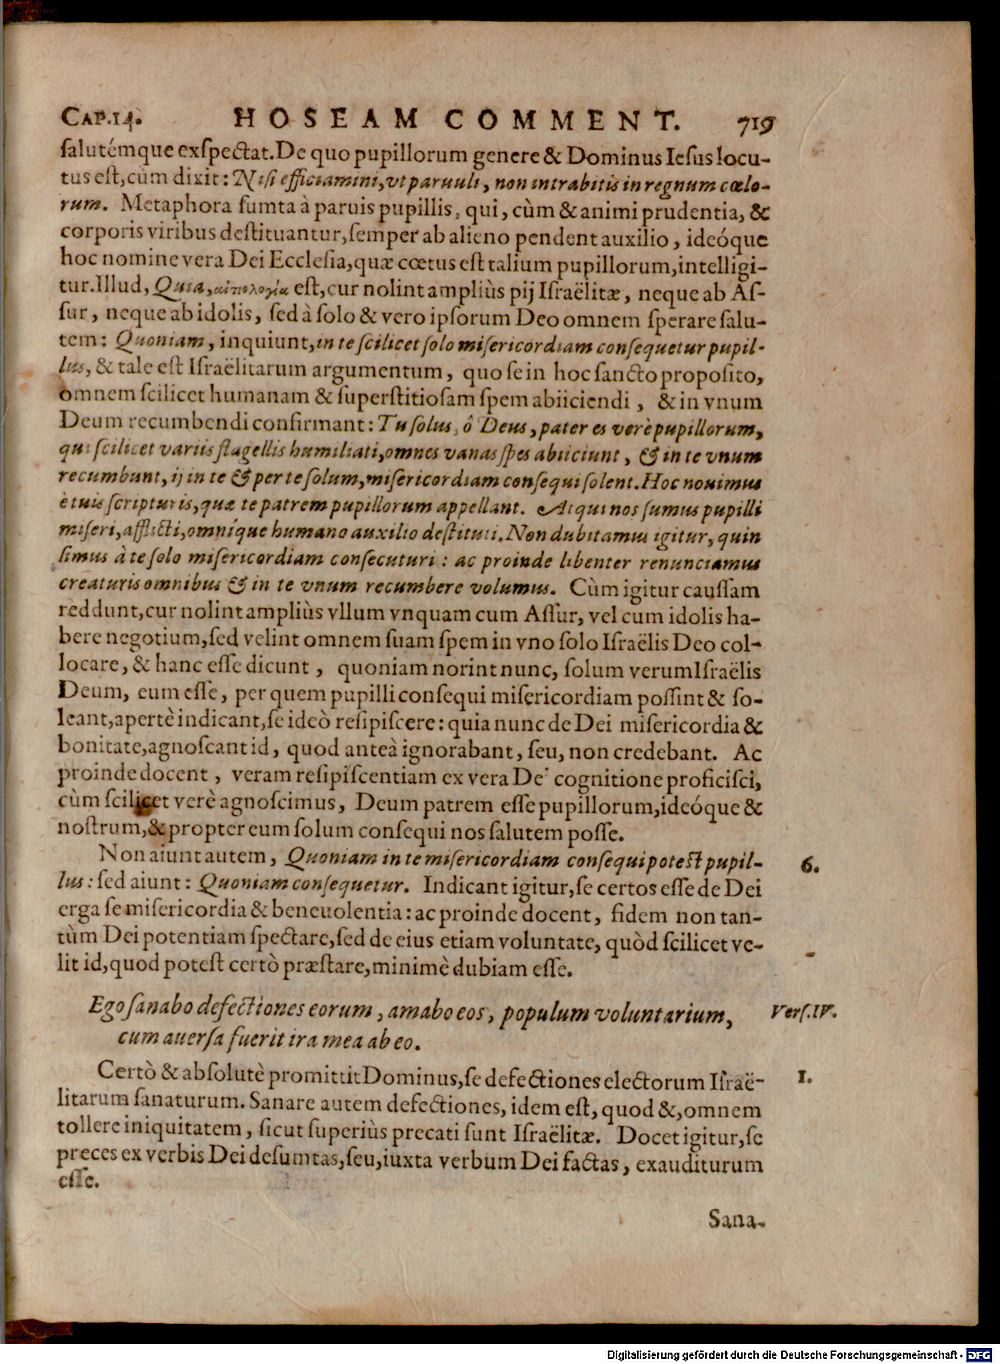 CAP.14. HOSEAM COMMENT. 719
salutémque exspectat. De quo pupillorum genere & Dominus Iesus locu-
tus est, cùm dixit: Nisi efficiamini, vt paruuli, non intrabitis in regnum cœlo-
rum. Metaphora sumta à paruis pupillis, qui, cùm & animi prudentia, &
corporis viribus destituantur, semper ab alieno pendent auxilio, ideóque
hoc nomine vera Dei Ecclesia, quæ cœtus est talium pupillorum, intelligi-
tur. Illud, Quia, αἰτιολογία est, cur nolint ampliùs pij Israëlitæ, neque ab As-
sur, neque ab idolis, sed à solo & vero ipsorum Deo omnem sperare salu-
tem: Quoniam, inquiunt, in te scilicet solo misericordiam consequetur pupil-
lus, & tale est Israëlitarum argumentum, quo se in hoc sancto proposito,
omnem scilicet humanam & superstitiosam spem abiiciendi, & in vnum
Deum recumbendi confirmant: Tu solus, ô Deus, pater es verè pupillorum,
qui scilicet variis flagellis humiliati, omnes vanas spes abiiciunt, & in te vnum
recumbunt, ij in te & per te solum, misericordiam consequi solent. Hoc nouimus
è tuis scripturis, quæ te patrem pupillorum appellant. Atqui nos sumus pupilli
miseri, afflicti, omníque humano auxilio destituti. Non dubitamus igitur, quin
simus à te solo misericordiam consecuturi: ac proinde libenter renunciamus
creaturis omnibus & in te vnum recumbere volumus. Cùm igitur caussam
reddunt, cur nolint ampliùs vllum vnquam cum Assur, vel cum idolis ha-
bere negotium, sed velint omnem suam spem in vno solo Israëlis Deo col-
locare, & hanc esse dicunt, quoniam norint nunc, solum verum Israëlis
Deum, eum esse, per quem pupilli consequi misericordiam possint & so-
leant, apertè indicant, se ideò resipiscere: quia nunc de Dei misericordia &
bonitate, agnoscant id, quod anteà ignorabant, seu, non credebant. Ac
proinde docent, veram resipiscentiam ex vera Dei cognitione proficisci,
cùm scilicet verè agnoscimus, Deum patrem esse pupillorum, ideóque &
nostrum, & propter eum solum consequi nos salutem posse.
Non aiunt autem, Quoniam in te misericordiam consequi potest pupil- 6.
lus: sed aiunt: Quoniam consequetur. Indicant igitur, se certos esse de Dei
erga se misericordia & beneuolentia: ac proinde docent, fidem non tan-
tùm Dei potentiam spectare, sed de eius etiam voluntate, quòd scilicet ve-
lit id, quod potest certò præstare, minimè dubiam esse.
Ego sanabo defectiones eorum, amabo eos, populum voluntarium, Vers. IV.
cum auersa fuerit ira mea ab eo.
Certò & absolutè promittit Dominus, se defectiones electorum Israë- 1.
litarum sanaturum. Sanare autem defectiones, idem est, quod &, omnem
tollere iniquitatem, sicut superiùs precati sunt Israëlitæ. Docet igitur, se
preces ex verbis Dei desumtas, seu, iuxta verbum Dei factas, exauditurum
esse.
Sana-
Digitalisierung gefördert durch die Deutsche Forschungsgemeinschaft - DFG